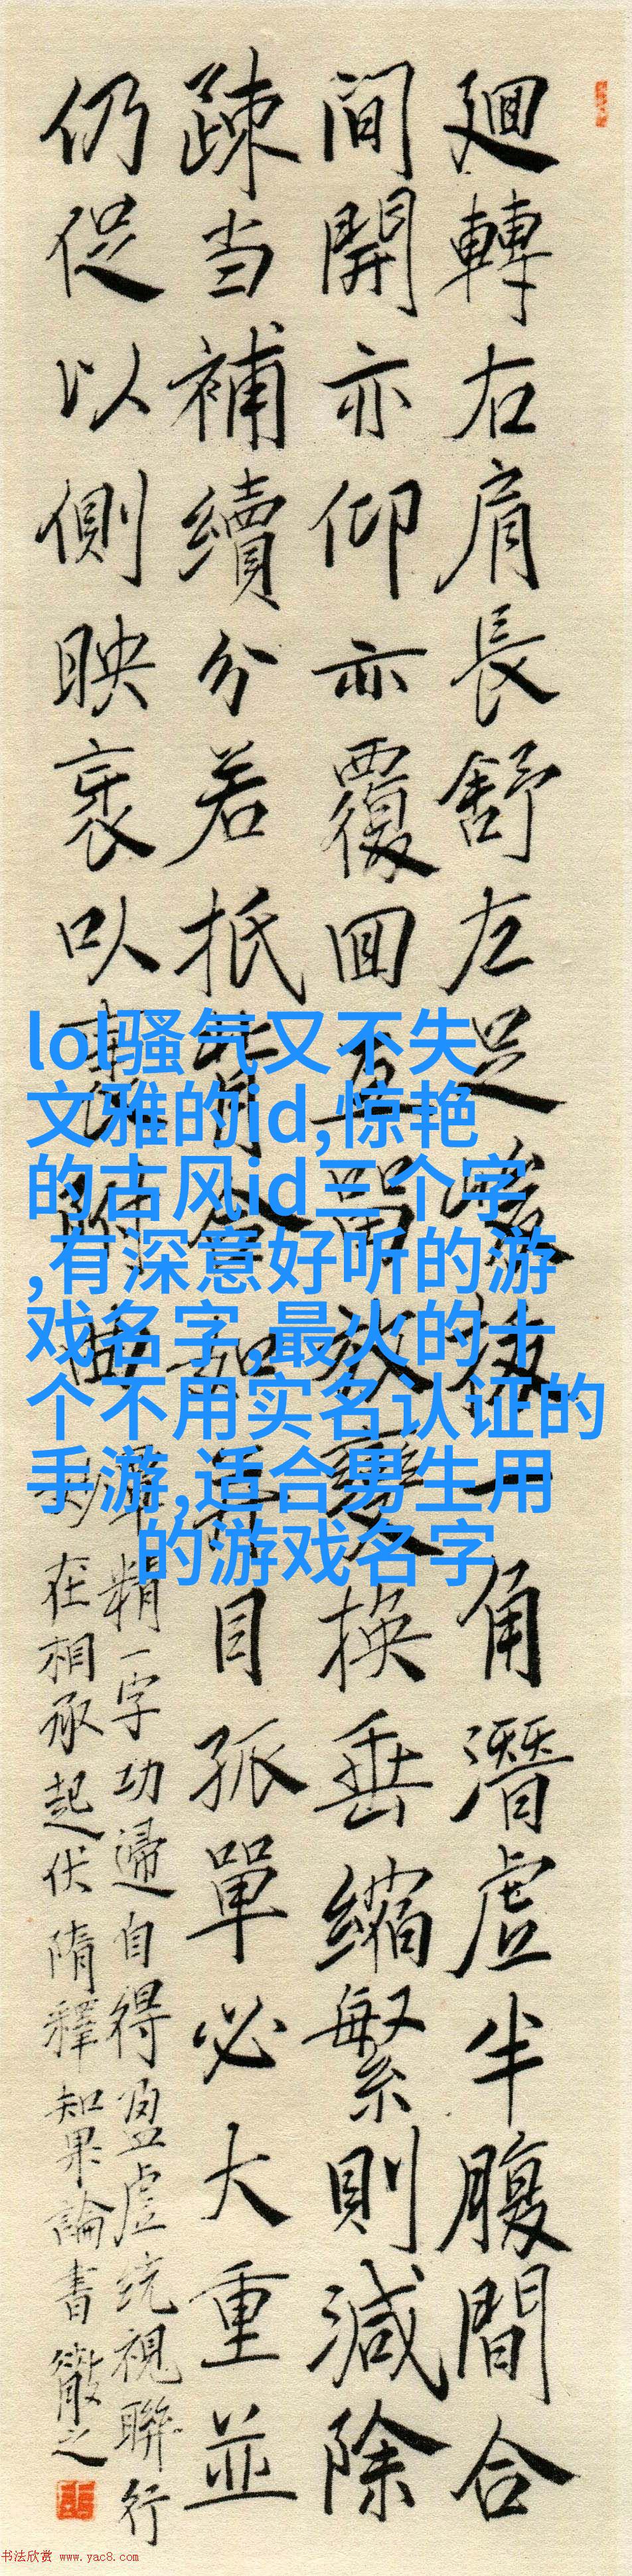 廻轉右肩長舒左足峻拔一角潛虚半腹間合
間開亦仰亦覆回互留放變換垂縮繁則減除
疎当補續分若抵背合如並目孤單必大重並
仍促以側映裹以附曲
精一字功歸自得盈虚统視聯行
妙在相承起伏隋釋智果論書徹之
lol骚气又不失
文雅的id,惊艳
的古风id三个字
,有深意好听的游
戏名字,最火的十
个不用实名认证的
手游,适合男生用
的游戏名字
书法欣赏 www.yac8.com